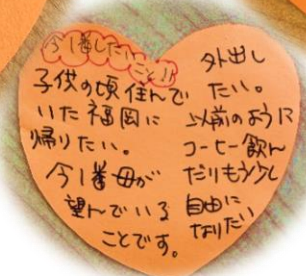 今1番したいこと!!
子供の頃住んで
いた福岡に
帰りたい。
今1番母が
望んでいる
ことです。
外出し
たい。
以前のように
コーヒー飲ん
だりもう少し
自由に
なりたい